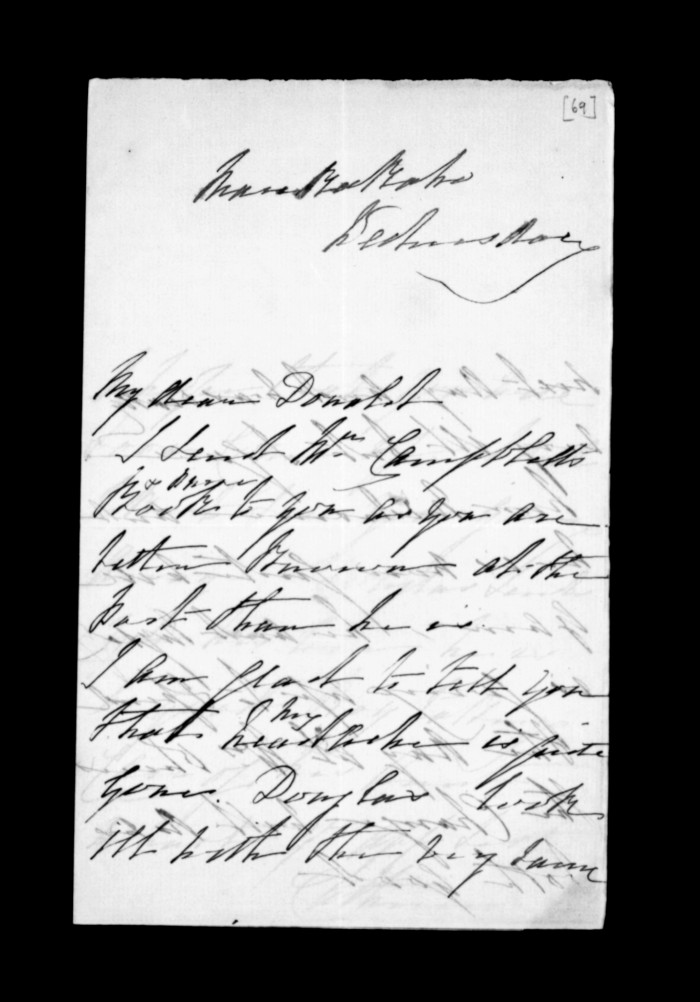 [69]
Maraekakaho
Wednesday
My dear Donald
I send Mr Campbell's
Book & Paper to you as you are
better known at the
Post than he is.
I am glad to tell you
that my headache is quite
gone. Douglas took
ill with the very same